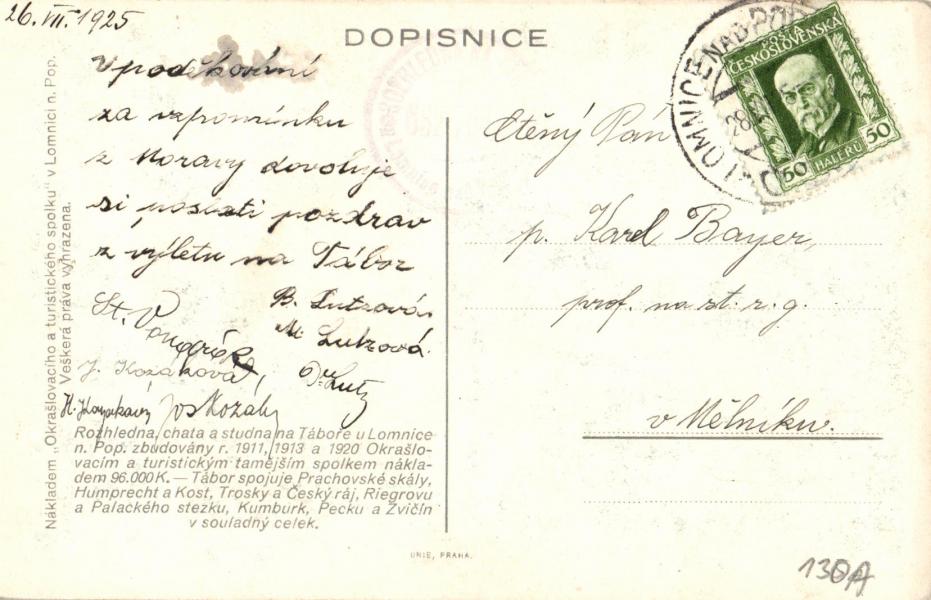 26. VII. 1925
DOPISNICE
V poděkování
za vzpomínku
z Moravy dovoluje
si poslati pozdrav
z výletu na Tábor
B. Lutzová.
M. Lutzová.
St. Vondrák
J. Kozáková,
Dr Lutz
Jos Kozák
Rozhledna, chata a studna na Táboře u Lomnice
n. Pop. zbudovány r. 1911, 1913 a 1920 Okrašlo-
vacím a turistickým tamějším spolkem nákla-
dem 96.000 K. — Tábor spojuje Prachovské skály,
Humprecht a Kost, Trosky a Český ráj, Riegrovu
a Palackého stezku, Kumburk, Pecku a Zvičín
v souladný celek.
Nákladem „Okrašlovacího a turistického spolku" v Lomnici n. Pop.
Veškerá práva vyhrazena.
UNIE, PRAHA.
LOMNICE NAD POP
28
POŠTA
ČESKOSLOVENSKÁ
50 HALÉŘŮ 50
Ctěný Pán
p. Karel Bayer,
prof. na st. r. g.
v Mělníku.
130A